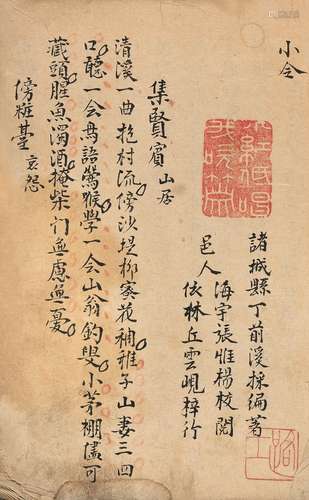 小令
諸城縣丁前溪採編著
邑人
海宇張惟楊校閱
依林丘雲峴梓行
集賢賓 山居
清溪一曲抱村流傍沙堤柳密花稠稚子山妻三四
口聽一会鳥語鶯喉学一会山翁釣叟小茅棚儘可
藏頭腥魚濁酒掩柴门無慮無憂
傍粧臺 哀怨